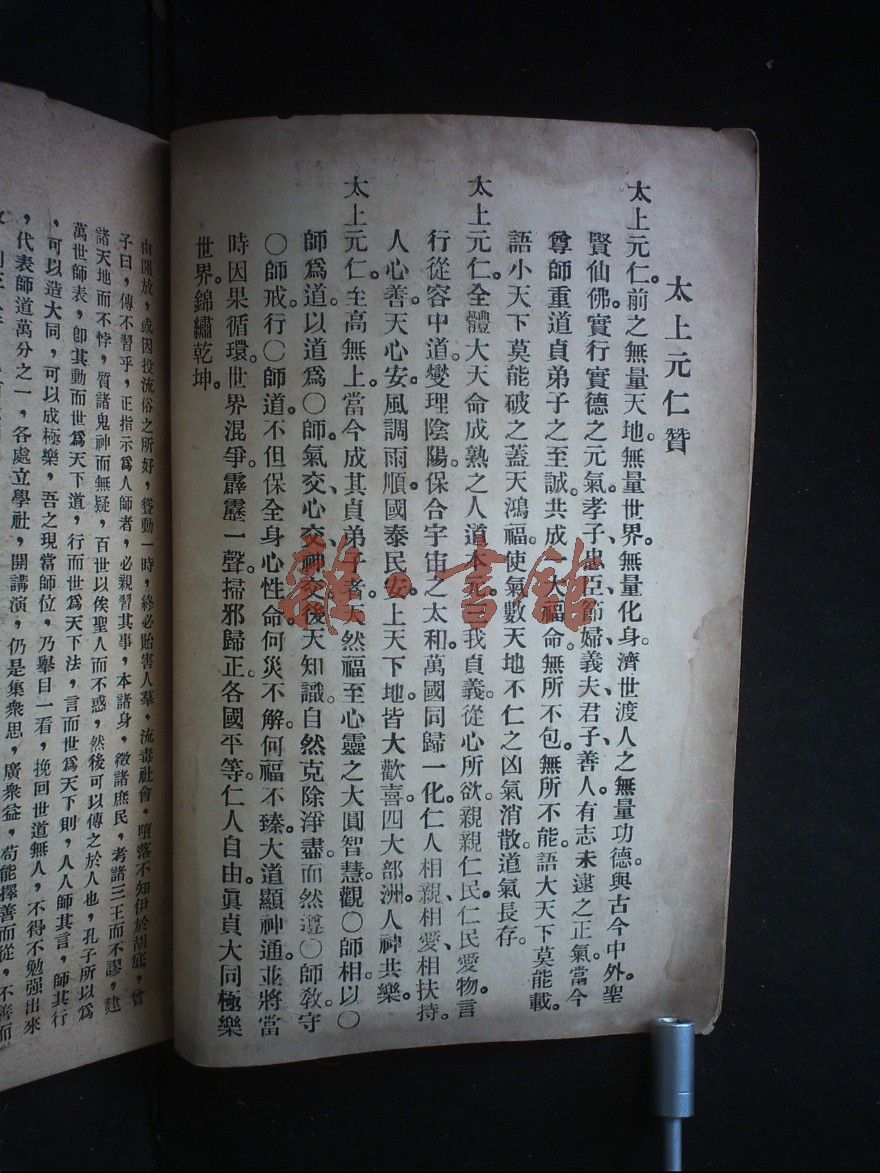 太上元仁贊
太上元仁。前之無量天地。無量世界。無量化身。濟世渡人之無量功德。與古今中外。聖
賢仙佛。實行實德之元氣。孝子、忠臣、節婦、義夫、君子、善人、有志未逮之正氣。當今
尊師重道貞弟子之至誠。共成一大福命。無所不包。無所不能。語大天下莫能載。
語小天下莫能破之蓋天鴻福。使氣數天地不仁之凶氣消散。道氣長存。
太上元仁。全體大天命成熟之人道本元。曰我貞義。從心所欲。親親仁民。仁民愛物。言
行從容中道。燮理陰陽。保合宇宙之太和。萬國同歸一化。仁人相親、相愛、相扶持。
人心善。天心安。風調雨順。國泰民安。上天下地。皆大歡喜。四大部洲。人神共樂。
太上元仁。至高無上。當今成其貞弟子者。天然福至心靈之大圓智慧。觀〇師相。以〇
師爲道。以道爲〇師。氣交、心交、神交。後天知識。自然克除淨盡。而然遵〇師敎。守
〇師戒。行〇師道。不但保全身心性命。何災不解。何福不臻。大道顯神通。並將當
時因果循環。世界混爭。霹靂一聲。掃邪歸正。各國平等。仁人自由。眞貞大同極樂
世界。錦繡乾坤。
由開放，或因投流俗之所好，聳動一時，終必貽害人羣，流毒社會，墮落不知伊於胡底，曾
子曰，傳不習乎，正指示爲人師者，必親習其事，本諸身，徵諸庶民，考諸三王而不謬，建
諸天地而不悖，質諸鬼神而無疑，百世以俟聖人而不惑，然後可以傳之於人也，孔子所以爲
萬世師表，卽其動而世爲天下道，行而世爲天下法，言而世爲天下則，人人師其言，師其行
，可以造大同，可以成極樂，吾之現當師位，乃舉目一看，挽回世道無人，不得不勉强出來
，代表師道萬分之一，各處立學社，開講演，仍是集衆思，廣衆益，苟能擇善而從，不善而
雜·書館